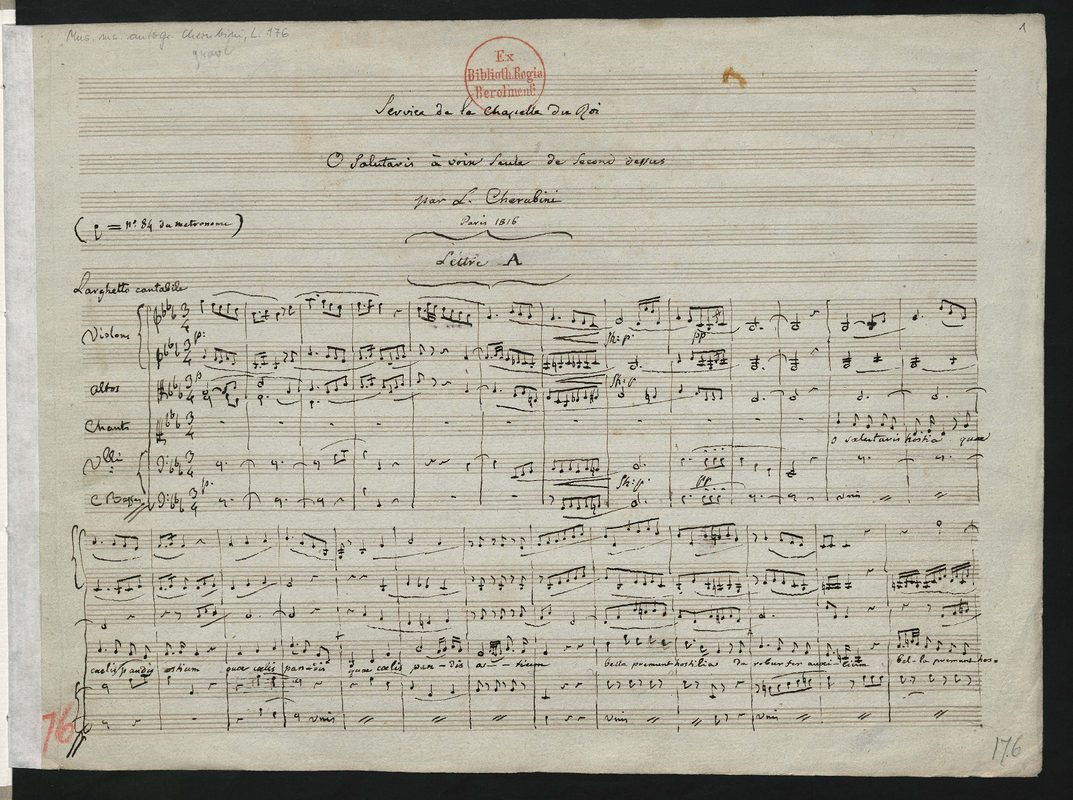 Mus. ms. autogr. Cherubini, L. 176
1
Ex
Biblioth. Regia
Berolinensi
Service de la Chapelle du Roi
O Salutaris à voix seule de second dessus
par L. Cherubini
( = n.º 84 du metronome)
Paris 1816
Lettre A
Larghetto cantabile
Violons
p.
pp
p
Altos
Chant
o salutaris hostia quae
Vlli
p.
pp
C Basses
unis
caelis pandis ostium quae caelis pandis quae caelis pan-dis o-stium bella premunt hostilia da robur fer auxilium bel-la premunt hos-
unis unis unis
76
176